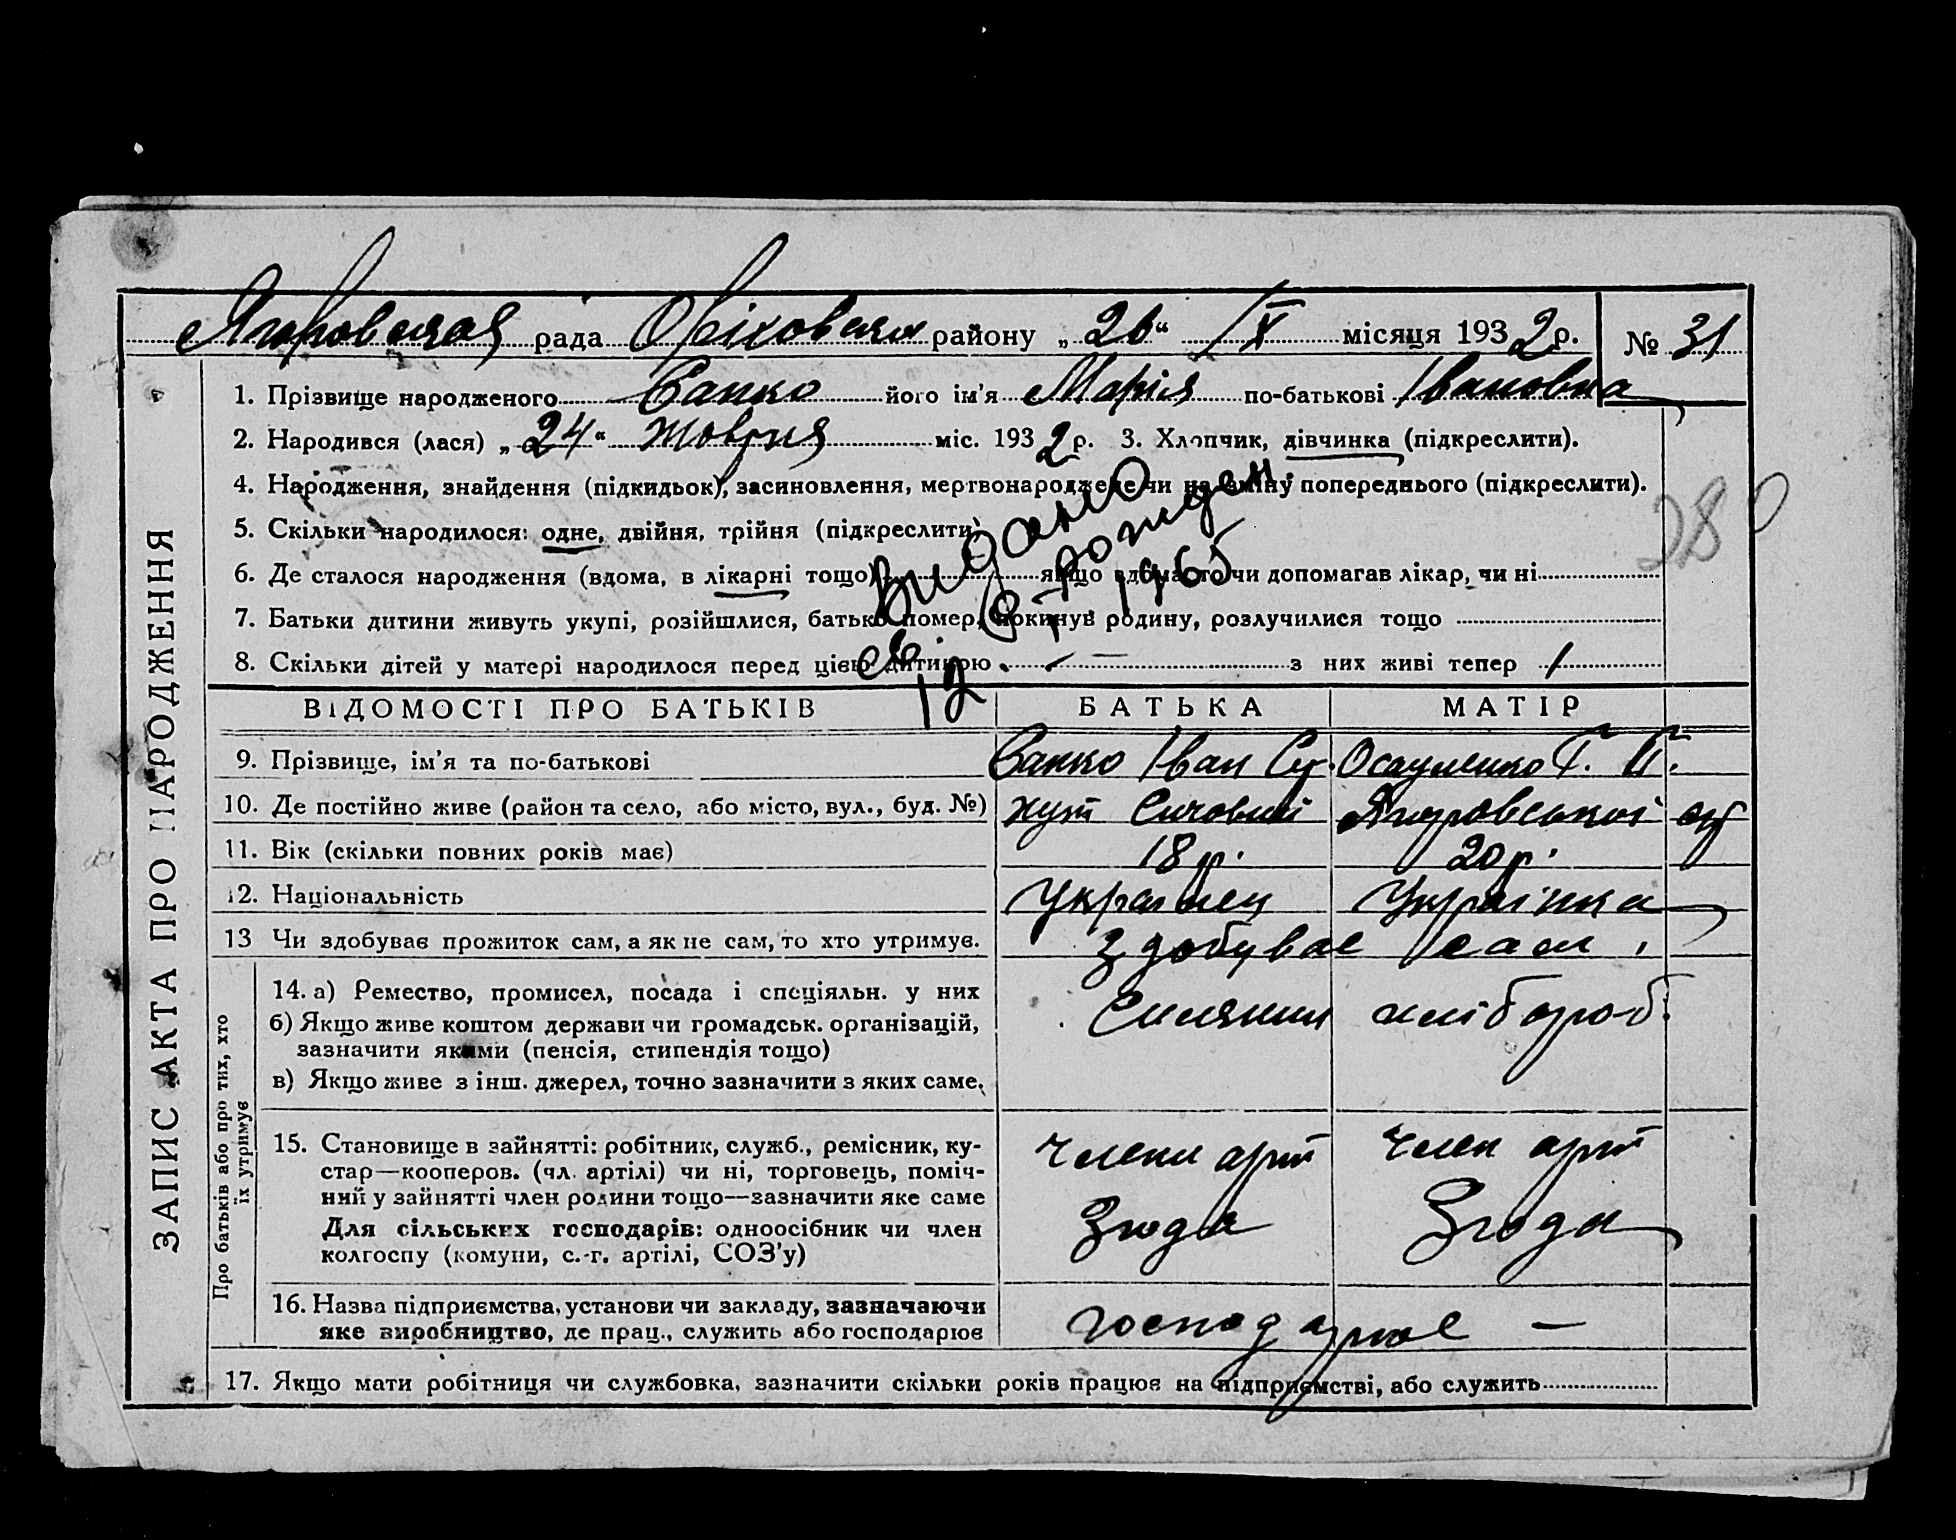 рада Оріховського району „26“ IX місяця 1932 р. № 31
ЗАПИС АКТА ПРО НАРОДЖЕННЯ
1. Прізвище народженого Сапко його ім'я Марія по-батькові Івановна
2. Народився (лася) „24“ жовтня міс. 1932 р. 3. Хлопчик, дівчинка (підкреслити).
4. Народження, знайдення (підкидьок), засиновлення, мертвонароджене чи на зміну попереднього (підкреслити).
5. Скільки народилося: одне, двійня, трійня (підкреслити)
6. Де сталося народження (вдома, в лікарні тощо) якщо вдома, то чи допомагав лікар, чи ні
7. Батьки дитини живуть укупі, розійшлися, батько помер, покинув родину, розлучилися тощо
8. Скільки дітей у матері народилося перед цією дитиною — з них живі тепер 1
Видано
св. о рожден.
1965
12
280
ВІДОМОСТІ ПРО БАТЬКІВ БАТЬКА МАТІР
9. Прізвище, ім'я та по-батькові Сапко Іван Осауленко
10. Де постійно живе (район та село, або місто, вул., буд. №) хут
11. Вік (скільки повних років має) 18 р. 20 р.
12. Національність Українец Українка
13 Чи здобуває прожиток сам, а як не сам, то хто утримує. Здобуває сам
Про батьків або про тих, хто
їх утримує
14. а) Ремество, промисел, посада і спеціяльн. у них Селянин хлібороб.
б) Якщо живе коштом держави чи громадськ. організацій,
зазначити якими (пенсія, стипендія тощо)
в) Якщо живе з інш. джерел, точно зазначити з яких саме.
15. Становище в зайнятті: робітник, служб., ремісник, ку-
стар—кооперов. (чл. артілі) чи ні, торговець, поміч-
ний у зайнятті член родини тощо—зазначити яке саме
Для сільських господарів: одноосібник чи член
колгоспу (комуни, с.-г. артілі, СОЗ'у)
арт член арт
Згода Згода
16. Назва підприємства, установи чи закладу, зазначаючи
яке виробництво, де прац., служить або господарює господарює —
17. Якщо мати робітниця чи службовка, зазначити скільки років працює на підприємстві, або служить